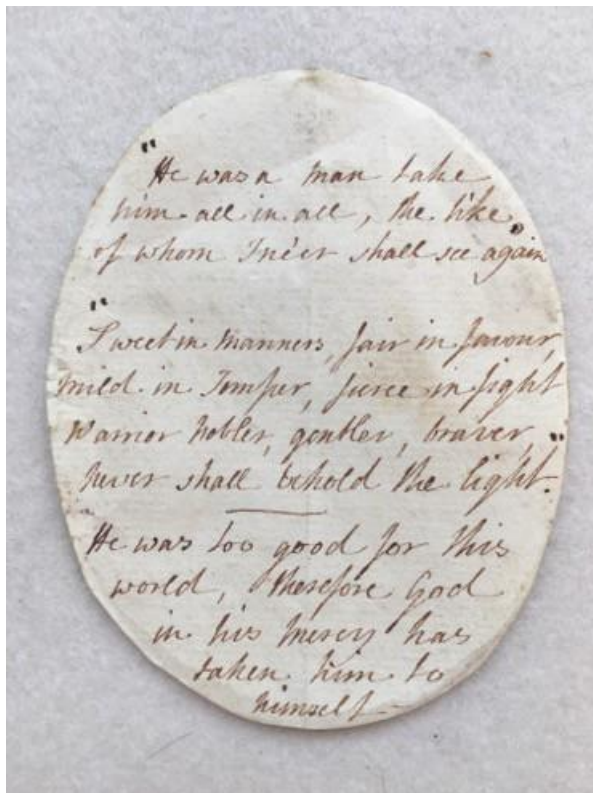 "He was a man take
him all in all, the like
of whom I ne'er shall see again"
"Sweet in manners, fair in favour,
mild in Temper, fierce in fight
Warrior nobler, gentler, braver,
never shall behold the light."
He was too good for this
world, therefore God
in his mercy has
taken him to
himself—